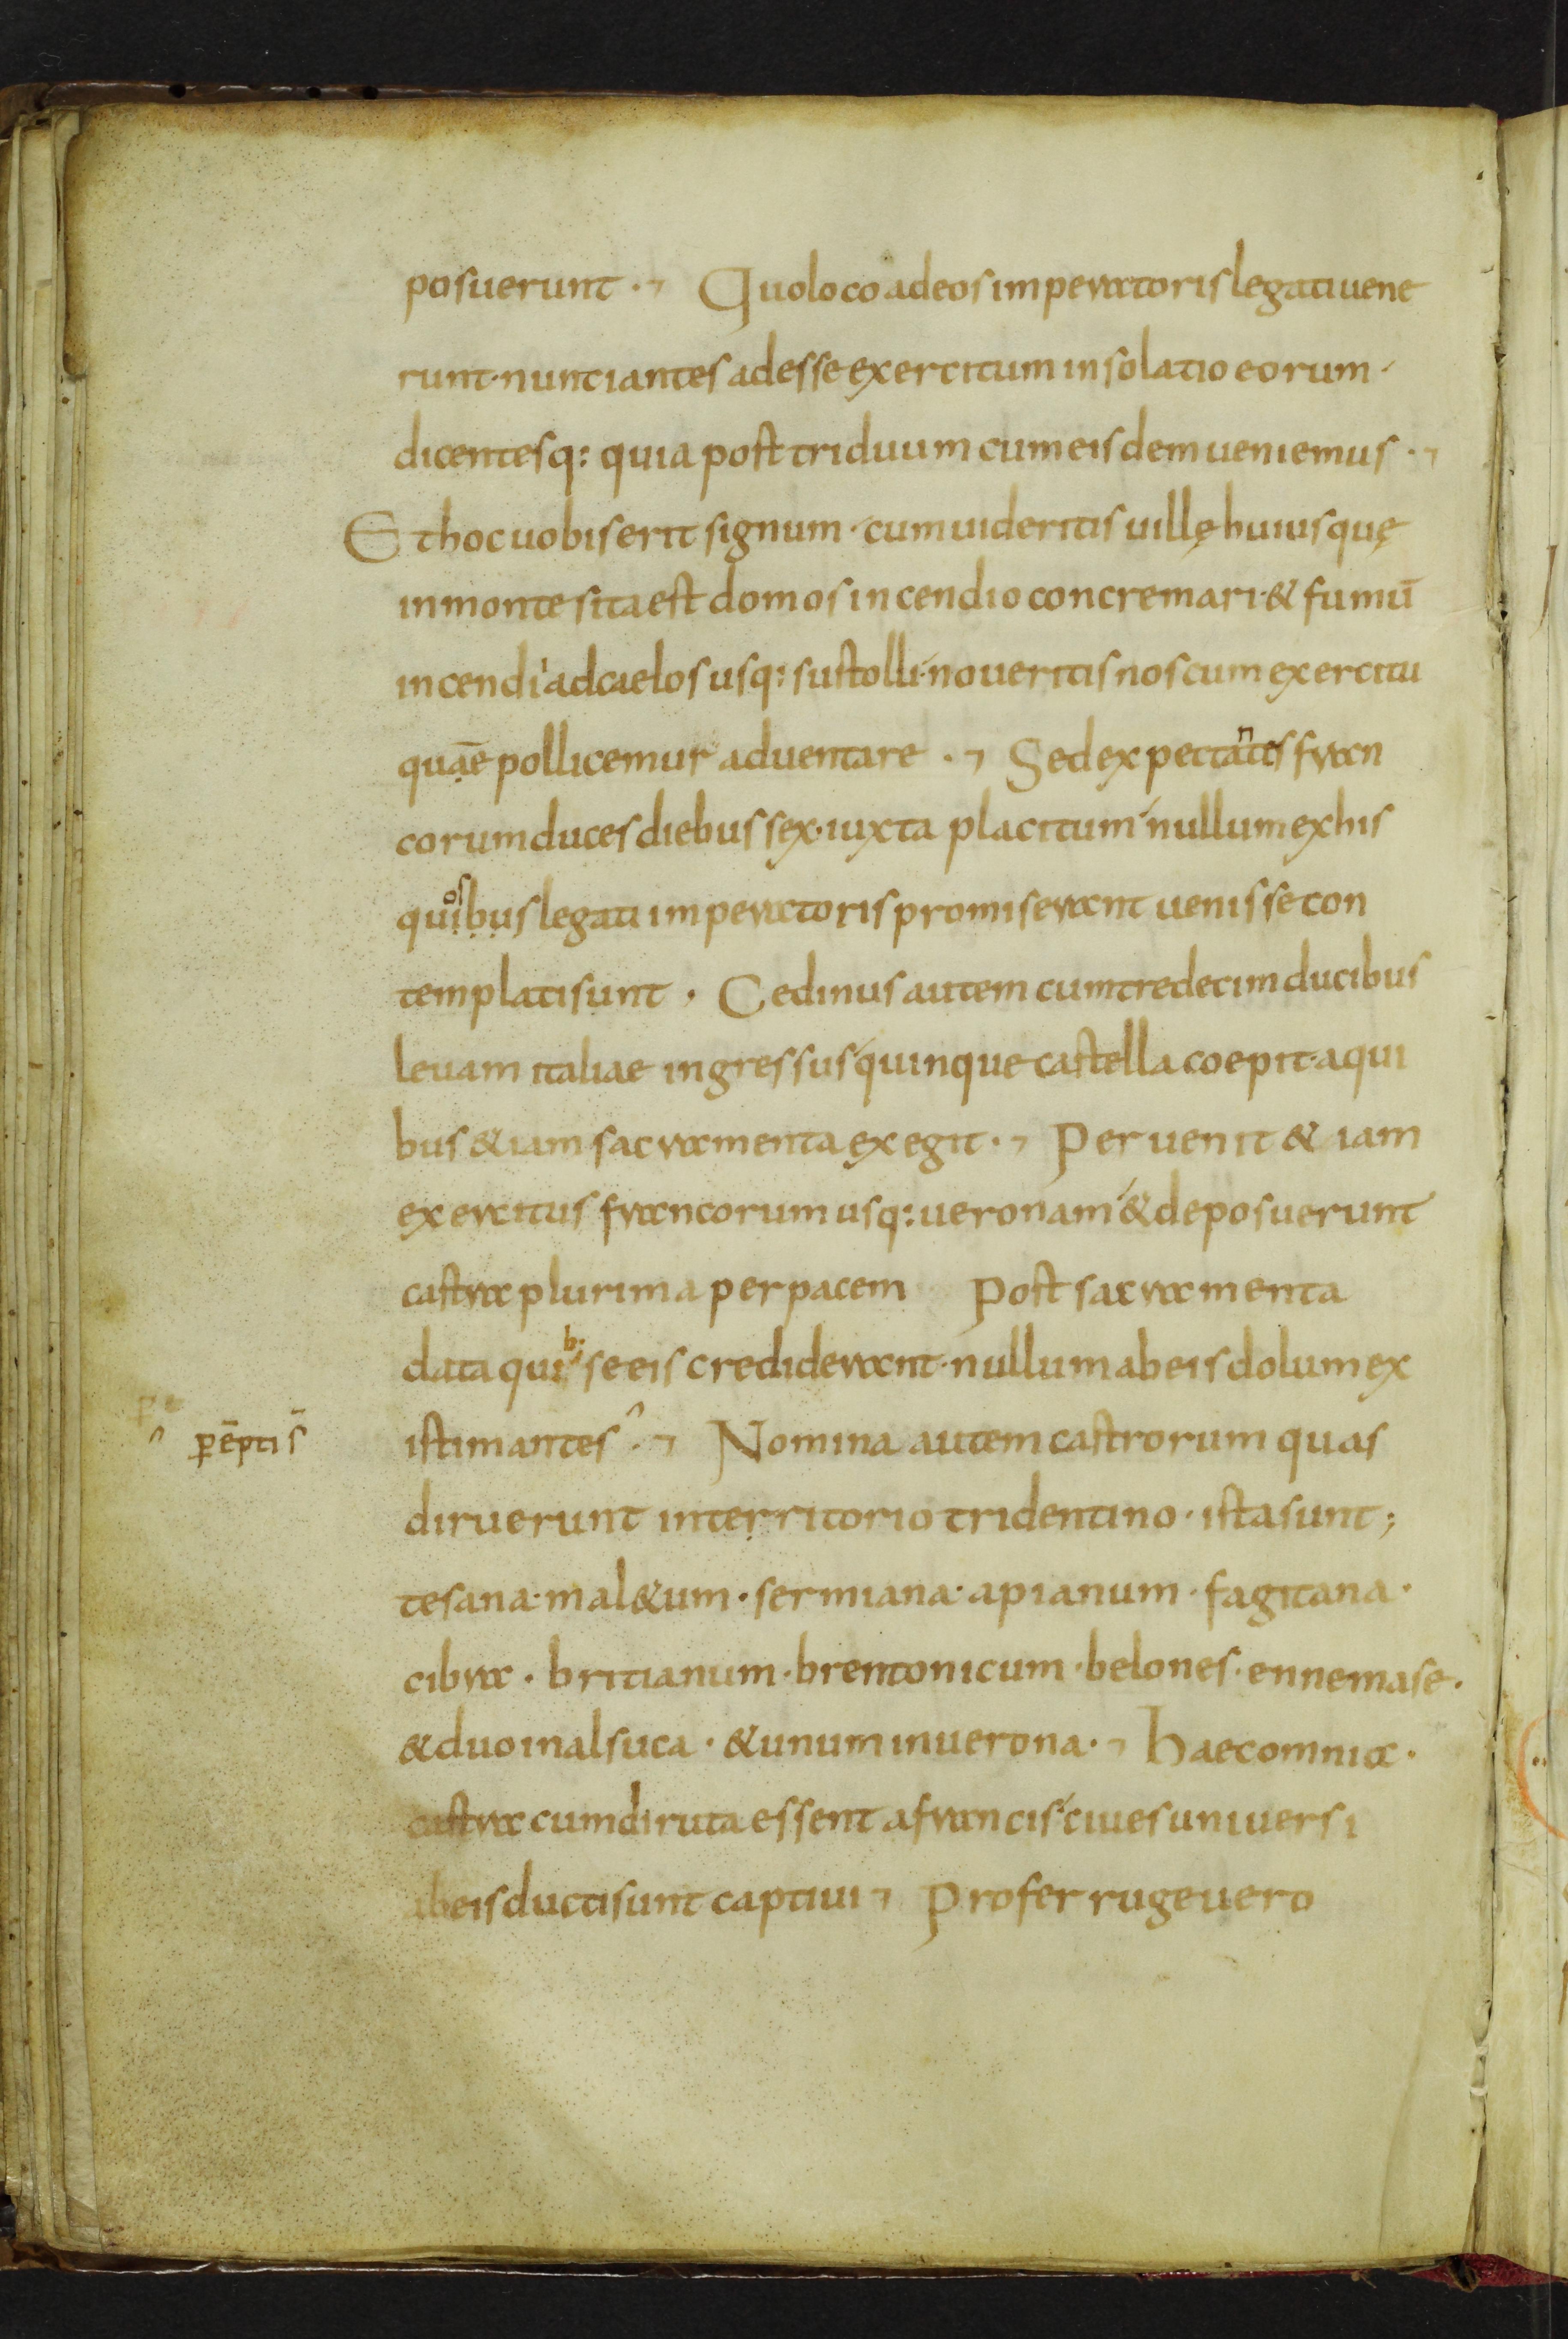 posuerunt · ¬ Quo loco ad eos imperatoris legati uene
runt · nunciantes adesse exercitum in solatio eorum ·
dicentesq: quia post triduum cum eisdem ueniemus · ¬
Et hoc uobis erit signum · cum uideritis uillę huius quę
in monte sita est domos incendio concremari · & fumū
incendii ad caelos usq: sustolli · noueritis nos cum exercitu
quaē pollicemur aduentare · ¬ Sed expectantes fran
corum duces diebus sex · iuxta placitum nullum ex his
quosibus legati imperatoris promiserant uenisse con
templati sunt · Cedinus autem cum tredecim ducibus
leuam italiae ingressus quinque castella coepit · a qui
bus & iam sacramenta exegit · ¬ Peruenit & iam
exercitus francorum usq: ueronam & deposuerunt
castra plurima per pacem Post sacramenta
data quib: se eis crediderant · nullum ab eis dolum ex
ꝑēptis̄
istimantes · ¬ Nomina autem castrorum quas
diruerunt in territorio tridentino · ista sunt ;
tesana · mal&um · sermiana · apianum · fagitana ·
cibra · britianum · brentonicum · belones · ennemase ·
& duo in alsuca · & unum in uerona · ¬ Haec omnia ·
castra cum diruta essent a francis ciues uniuersi
ab eis ducti sunt captiui ¬ Pro ferruge uero